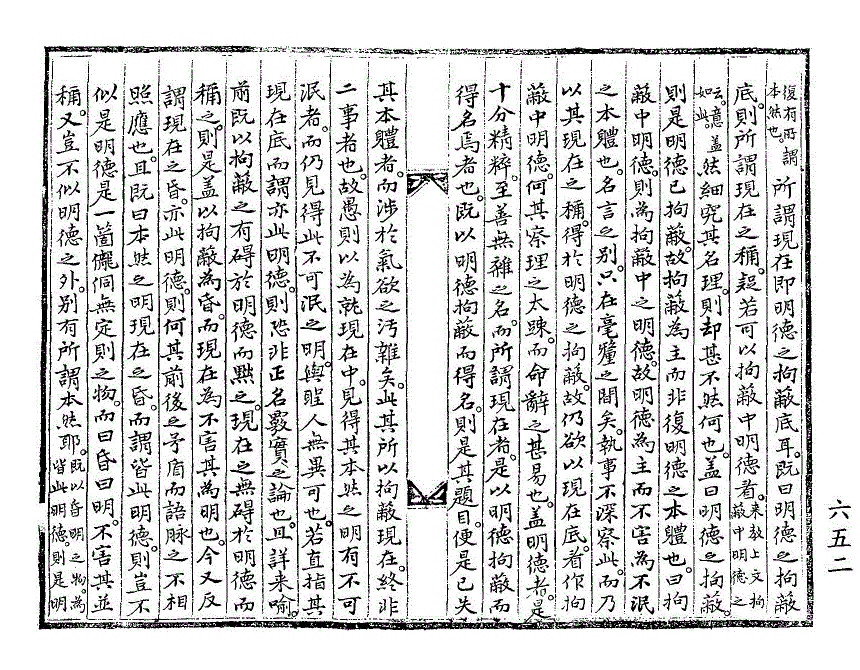 復有所謂
本然也。
所謂現在即明德之拘蔽底耳。既曰明德之拘蔽
底。則所謂現在之稱。疑若可以拘蔽中明德者。
來敎上文拘
蔽中明德之
云。意盖
如此。
然細究其名理。則却甚不然何也。盖曰明德之拘蔽。
則是明德已拘蔽。故拘蔽為主而非復明德之本體也。曰拘
蔽中明德。則為拘蔽中之明德。故明德為主而不害為不泯
之本體也。名言之別。只在毫釐之間矣。執事不深察此。而乃
以其現在之稱。得於明德之拘蔽。故仍欲以現在底。看作拘
蔽中明德。何其察理之太踈。而命辭之甚易也。盖明德者。是
十分精粹。至善無雜之名。而所謂現在者。是以明德拘蔽而
得名焉者也。既以明德拘蔽而得名。則是其題目。便是已失
其本體者。而涉於氣欲之汚雜矣。此其所以拘蔽現在。終非
二事者也。故愚則以為就現在中。見得其本然之明有不可
泯者。而仍見得此不可泯之明。與聖人無異可也。若直指其
現在底而謂亦此明德。則恐非正名覈實之論也。且詳來喩。
前既以拘蔽之有碍於明德而黜之。現在之無碍於明德而
稱之。則是盖以拘蔽為昏。而現在為不害其為明也。今又反
謂現在之昏。亦此明德。則何其前後之矛盾而語脉之不相
照應也。且既曰本然之明現在之昏。而謂皆此明德。則豈不
似是明德是一箇儱侗無定則之物。而曰昏曰明。不害其並
稱。又豈不似明德之外。別有所謂本然耶。
既以昏明之物。為
皆此明德。則是明
六五二